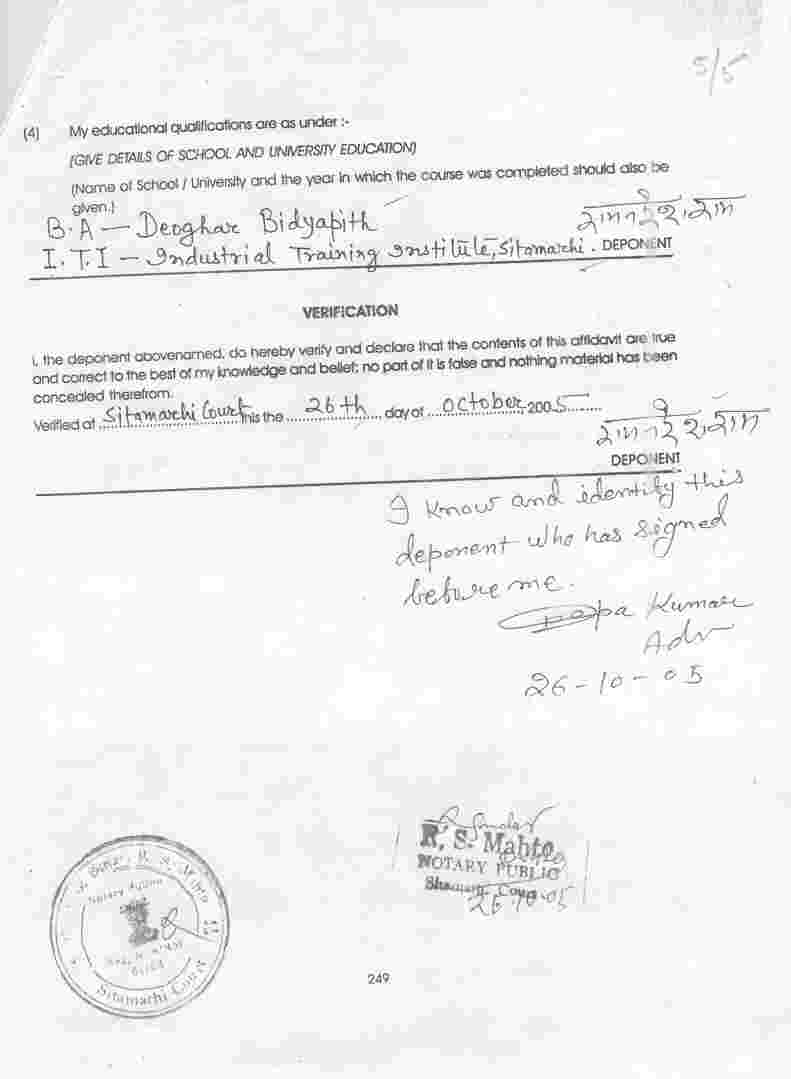 5/5
(4) My educational qualifications are as under :-
(GIVE DETAILS OF SCHOOL AND UNIVERSITY EDUCATION)
(Name of School / University and the year in which the course was completed should also be
given.)
B.A — Deoghar Bidyapith
I.T.I — Industrial Training Institute, Sitamarhi. DEPONENT
VERIFICATION
I, the deponent abovenamed, do hereby verify and declare that the contents of this affidavit are true
and correct to the best of my knowledge and belief; no part of it is false and nothing material has been
concealed therefrom.
Verified at Sitamarhi Court this the 26th day of October, 2005
DEPONENT
I know and identify this
deponent who has signed
before me.
Kumar
Adv
26-10-05
R. S. Mahto
NOTARY PUBLIC
26.10.05
Sitamarhi Court
249